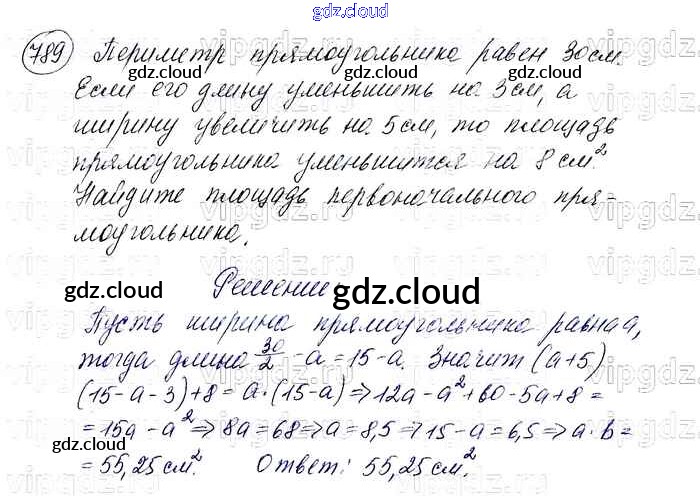 gdz.cloud
789 Периметр прямоугольника равен 30 см.
Если его длину уменьшить на 3 см, а
ширину увеличить на 5 см, то площадь
прямоугольника уменьшится на 8 см².
Найдите площадь первоначального пря-
моугольника.
Решение
Пусть ширина прямоугольника равна a,
тогда длина 30/2 - a = 15 - a. Значит (a+5)
(15-a-3)+8 = a·(15-a) ⇒ 12a - a² + 60 - 5a + 8 =
= 15a - a² ⇒ 8a = 68 ⇒ a = 8,5 ⇒ 15 - a = 6,5 ⇒ a·b =
= 55,25 см². Ответ: 55,25 см².